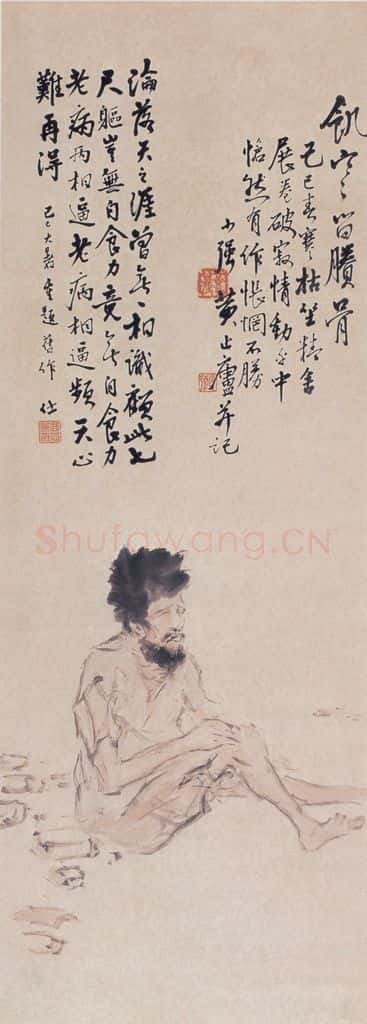 飢寒留賸骨
己巳春寒枯坐精舍
展卷破寂情動乎中
愴然有作悵惘不勝
少强黃止廬并記
淪落天之涯曾無一相識顧此七
尺軀豈無自食力竟無自食力
老病两相逼老病相逼頻天心
難再得
己巳大暑重題舊作 仕
Shufawang.CN